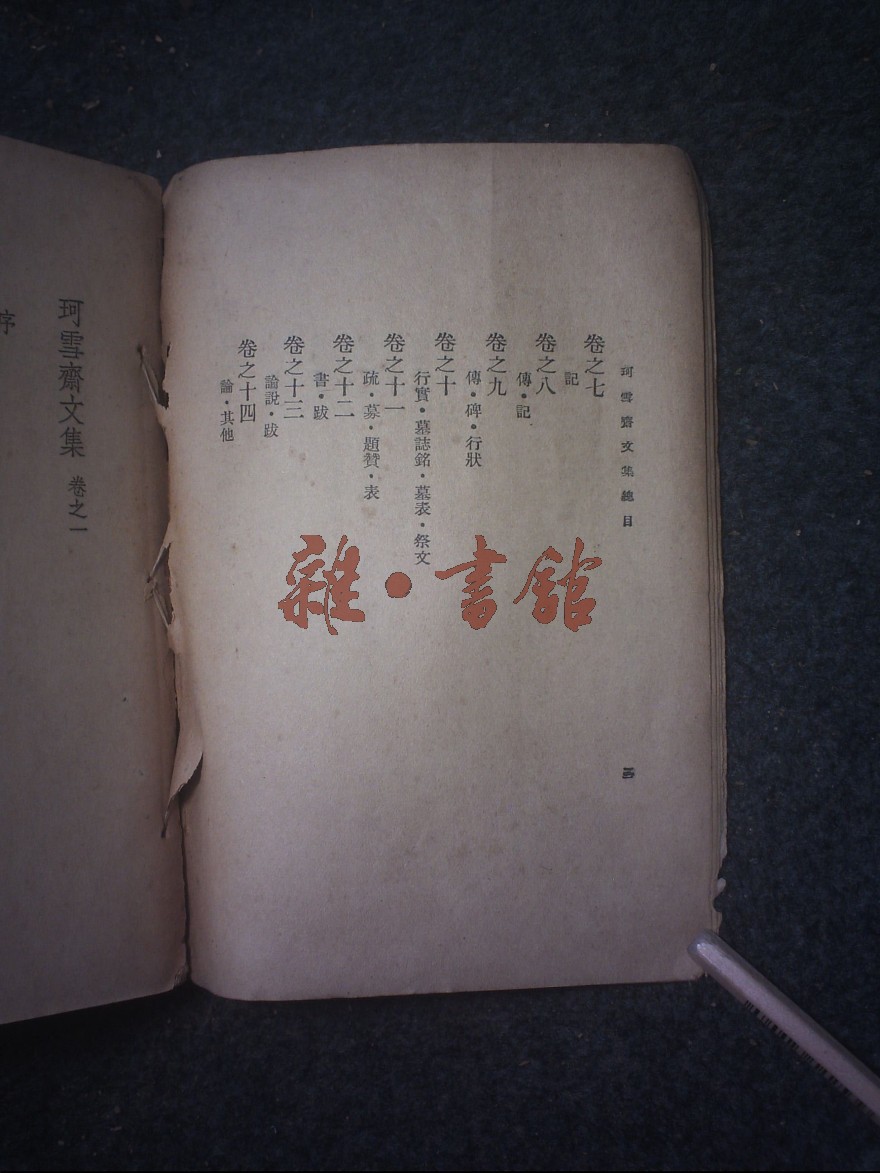 珂雪齋文集總目
卷之七
記
卷之八
傳・記
卷之九
傳・碑・行狀
卷之十
行實・墓誌銘・墓表・祭文
卷之十一
疏・募・題贊・表
卷之十二
書・跋
卷之十三
論說・跋
卷之十四
論・其他
雜・書館
珂雪齋文集 卷之一
序